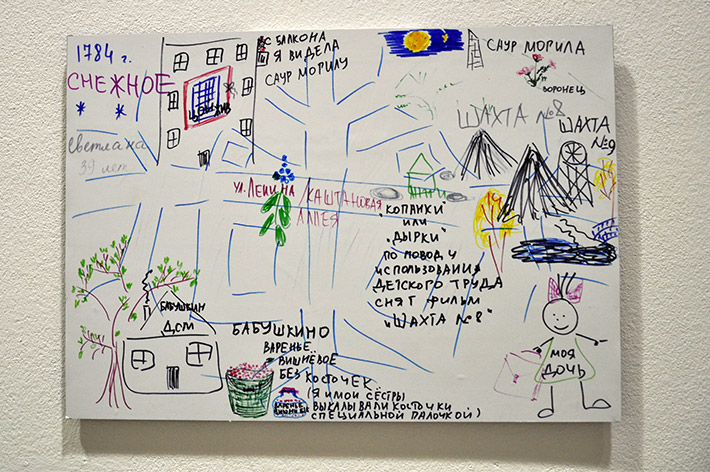 1784 г.
СНЕЖНОЕ
Светлана
39 лет
С БАЛКОНА
Я ВИДЕЛА
САУР МОРИЛУ
САУР МОРИЛА
ВОРОНЕЦ
ШАХТА №8
ШАХТА
№9
УЛ. ЛЕНИНА / КАШТАНОВАЯ
АЛЛЕЯ
"КОПАНКИ"
ИЛИ
"ДЫРКИ"
ПО ПОВОДУ
ИСПОЛЬЗОВАНИЯ
ДЕТСКОГО ТРУДА
СНЯТ ФИЛЬМ
"ШАХТА №8"
БАБУШКИН
ДОМ
БАБУШКИНО
ВАРЕНЬЕ
ВИШНЁВОЕ
БЕЗ КОСТОЧЕК
(Я И МОИ СЁСТРЫ
ВЫКАЛЫВАЛИ КОСТОЧКИ
СПЕЦИАЛЬНОЙ ПАЛОЧКОЙ)
МОЯ
ДОЧЬ